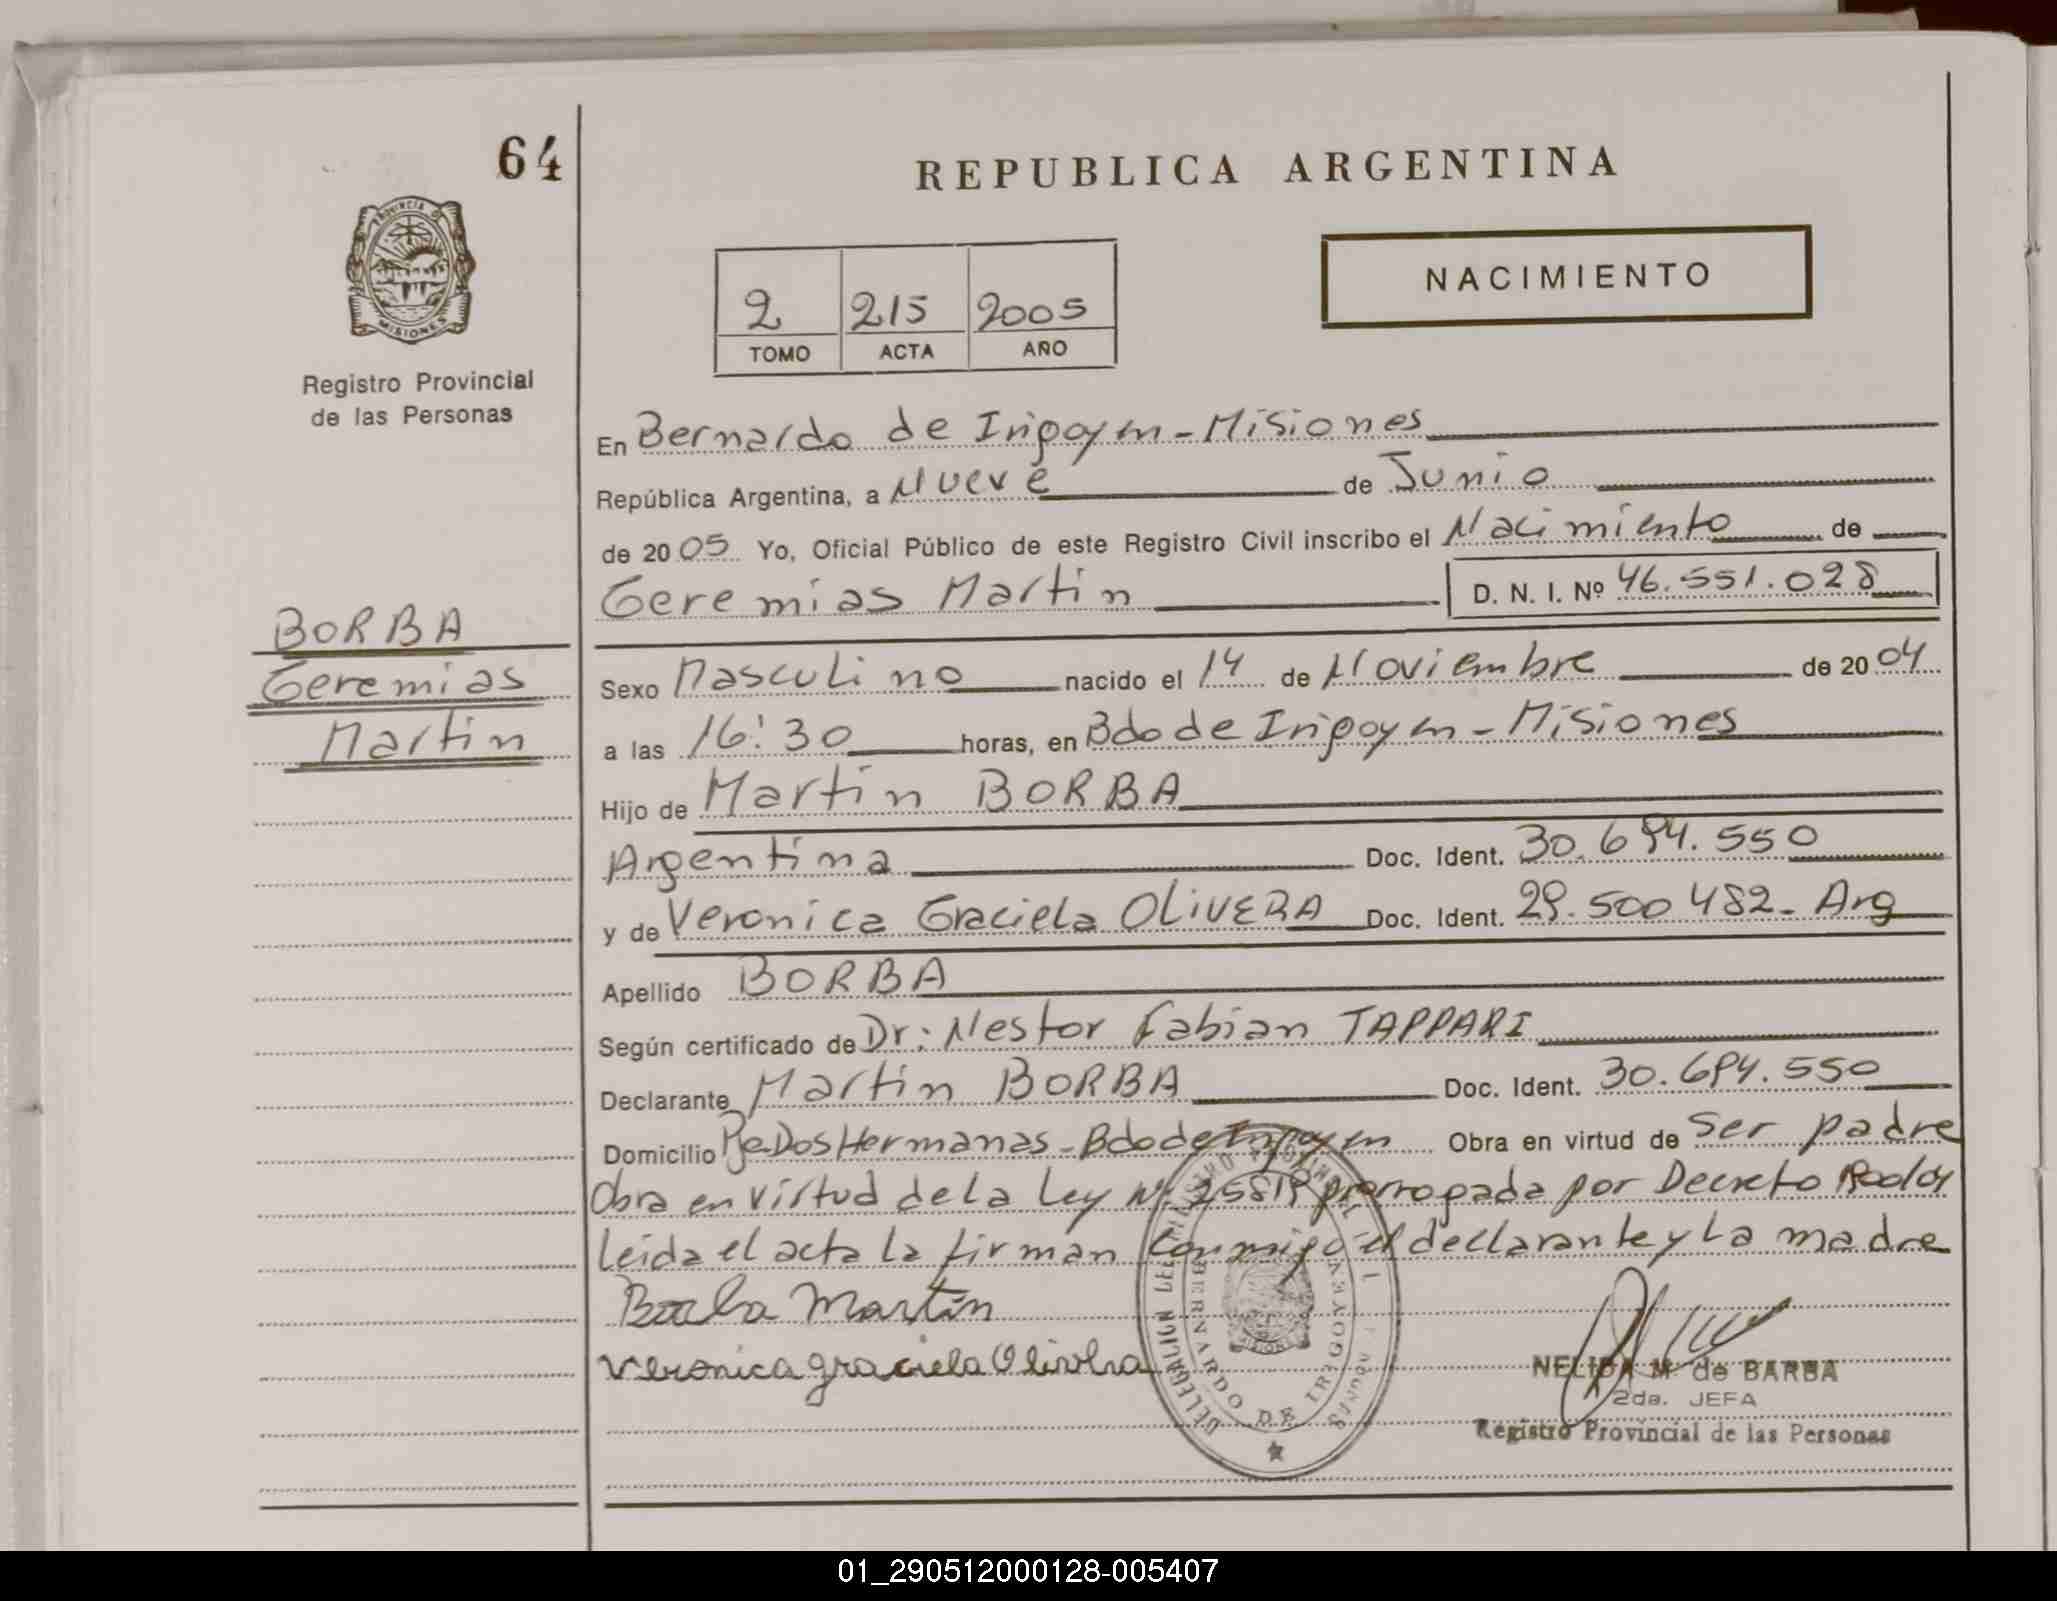 64
REPUBLICA ARGENTINA
PROVINCIA DE
MISIONES
Registro Provincial
de las Personas
NACIMIENTO
2 215 2005
TOMO ACTA AÑO
En Bernardo de Irigoyen - Misiones
República Argentina, a Nueve de Junio
de 2005 Yo, Oficial Público de este Registro Civil inscribo el Nacimiento de
Geremias Martin D. N. I. Nº 46.551.028
BORBA
Geremias
Martin
Sexo Masculino nacido el 14 de Noviembre de 2004
a las 16:30 horas, en Bdo de Irigoyen - Misiones
Hijo de Martin BORBA
Argentina Doc. Ident. 30.694.550
y de Veronica Graciela OLIVERA Doc. Ident. 29.500482- Arg
Apellido BORBA
Según certificado de Dr: Nestor Fabian TAPPARI
Declarante Martin BORBA Doc. Ident. 30.694.550
Domicilio Dos Hermanas - Bdo de Irigoyen Obra en virtud de Ser padre
Obra en virtud de la Ley Nº 25819 prorrogada por Decreto
leida el acta la firman conmigo el declarante y La madre
Borba Martin
Veronica graciela Olivera
DELEGACION DEL REGISTRO PROVINCIAL
BERNARDO DE IRIGOYEN
MISIONES
NELIDA M. de BARBA
2da. JEFA
Registro Provincial de las Personas
01_290512000128-005407